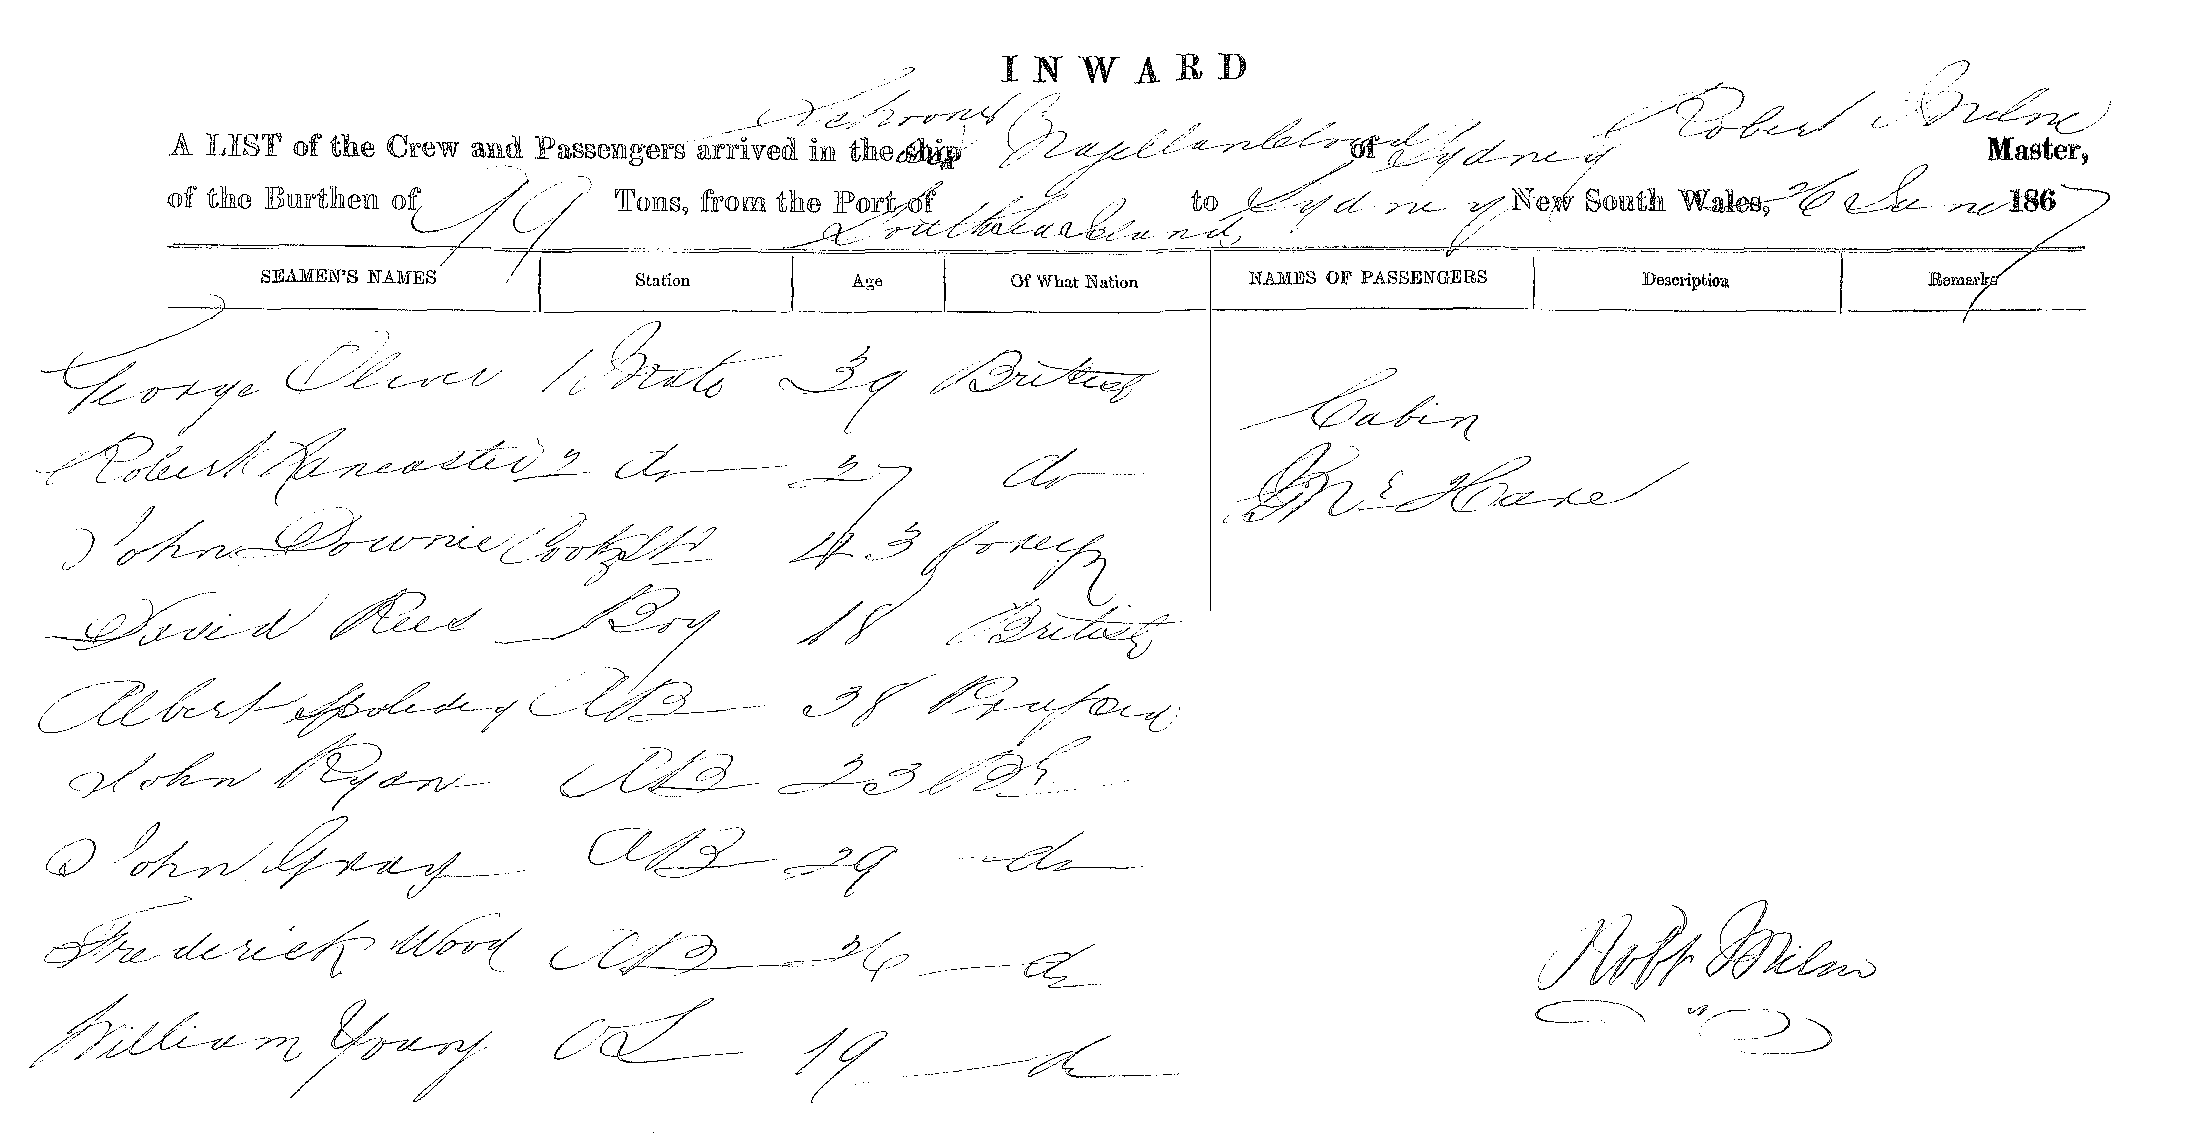 INWARD
A LIST of the Crew and Passengers arrived in the ship Schooner Magellan Cloud of Sydney Robert Milne Master,
of the Burthen of 79 Tons, from the Port of South Sea Islands to Sydney New South Wales, 26 June 1867
SEAMEN'S NAMES Station Age Of What Nation NAMES OF PASSENGERS Description Remarks
George Oliver 1 Mate 39 British
Cabin
Robert Lancaster 2 do 27 do
Mc Hare
John Downie Cook & St 43 Foreign
David Rees Boy 18 British
Albert AB 38
John Ryan AB 23 Bh
John Gray AB 29 do
Frederick Wood AB 26 do
Robt Milne
William Young OS 19 do